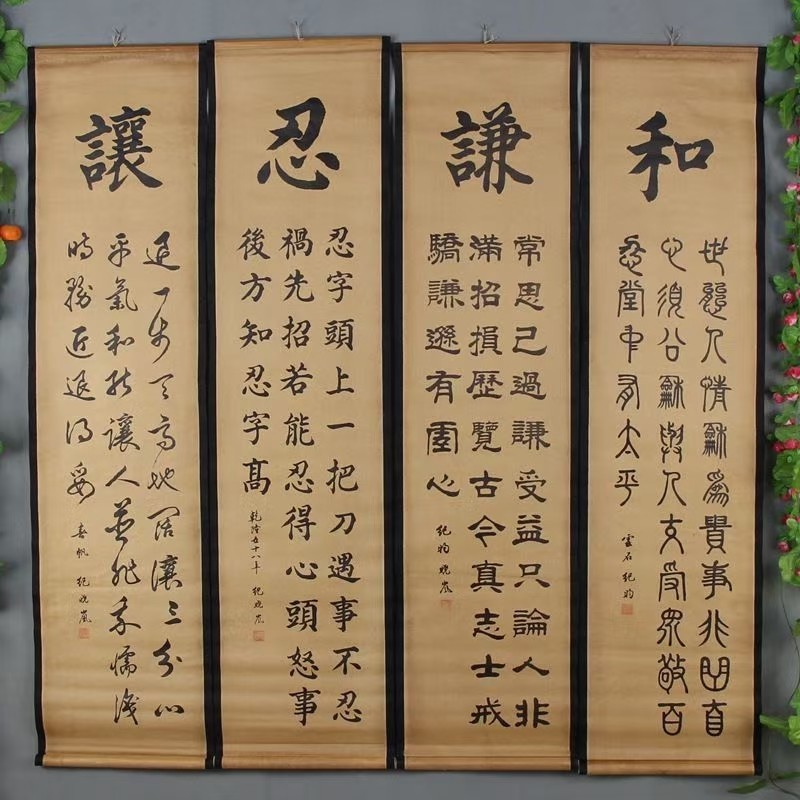 和
世態人情龢為貴事非曲直
心須公龢與人交受眾敬百
忍堂中有太平
雲石 紀昀
謙
常思己過謙受益只論人非
滿招損歷覽古今真志士戒
驕謙遜有虛心
紀昀曉嵐
忍
忍字頭上一把刀遇事不忍
禍先招若能忍得心頭怒事
後方知忍字高
乾隆五十八年 紀曉嵐
讓
退一步天高地闊讓三分心
平氣和能讓人並非懦識
時務近退得妥
春帆 紀曉嵐